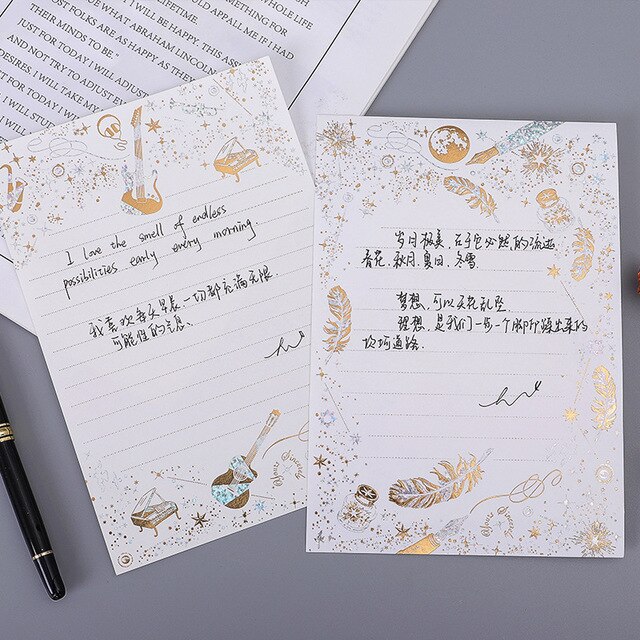 THEIR RE
SOMETHING FOR
ULD APPALL ME IF I HAD
A LIFETIME.
JUST FOR TODAY I WILL BE HAPPY
WHAT ABRAHAM LINCOLN
FOLKS ARE AS HAPPY AS THEY
THEIR MINDS TO BE."
AND NOT TRY TO ADJUST EV
DESIRES. I WILL TAKE MY
JUST FOR TODAY I WILL
I WILL STUD
I love the smell of endless
possibilities early every morning.
我喜欢每天早晨一切都充满无限
可能性的气息、
岁月极美,在于它必然的流逝
春花、秋月、夏日、冬雪.
梦想,可以天花乱坠
理想,是我们一步一个脚印踩出来的
坎坷道路